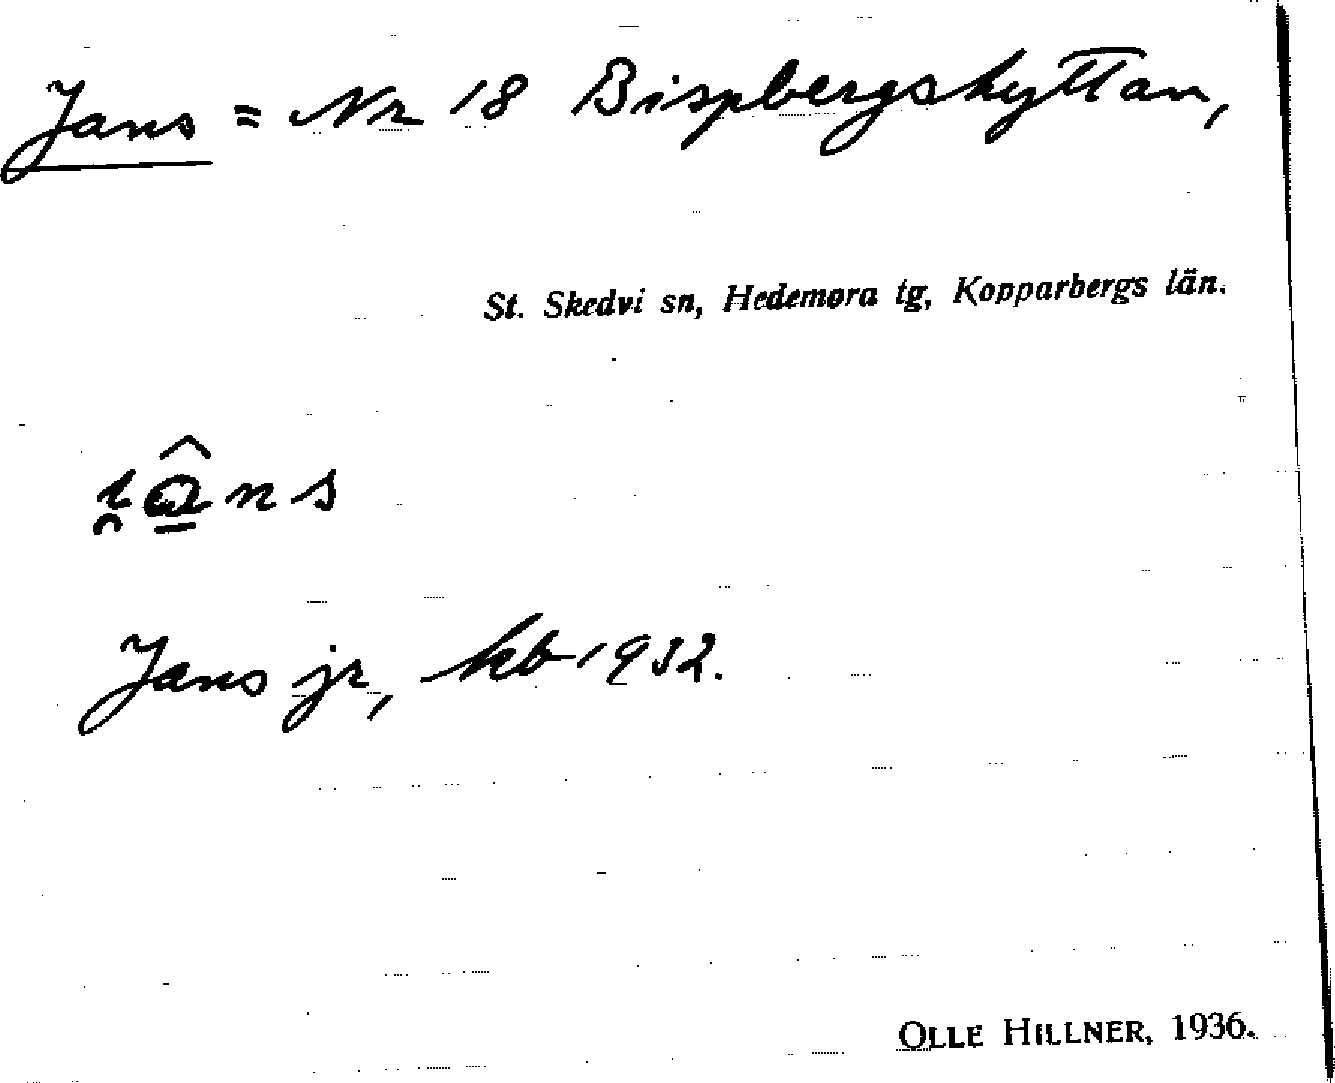 Jans = Nr 18 Bispbergshyttan,
St. Skedvi sn, Hedemora tg, Kopparbergs län.
i̯ɑ̲̂ns
Jans jr, kb 1932.
OLLE HILLNER, 1936.